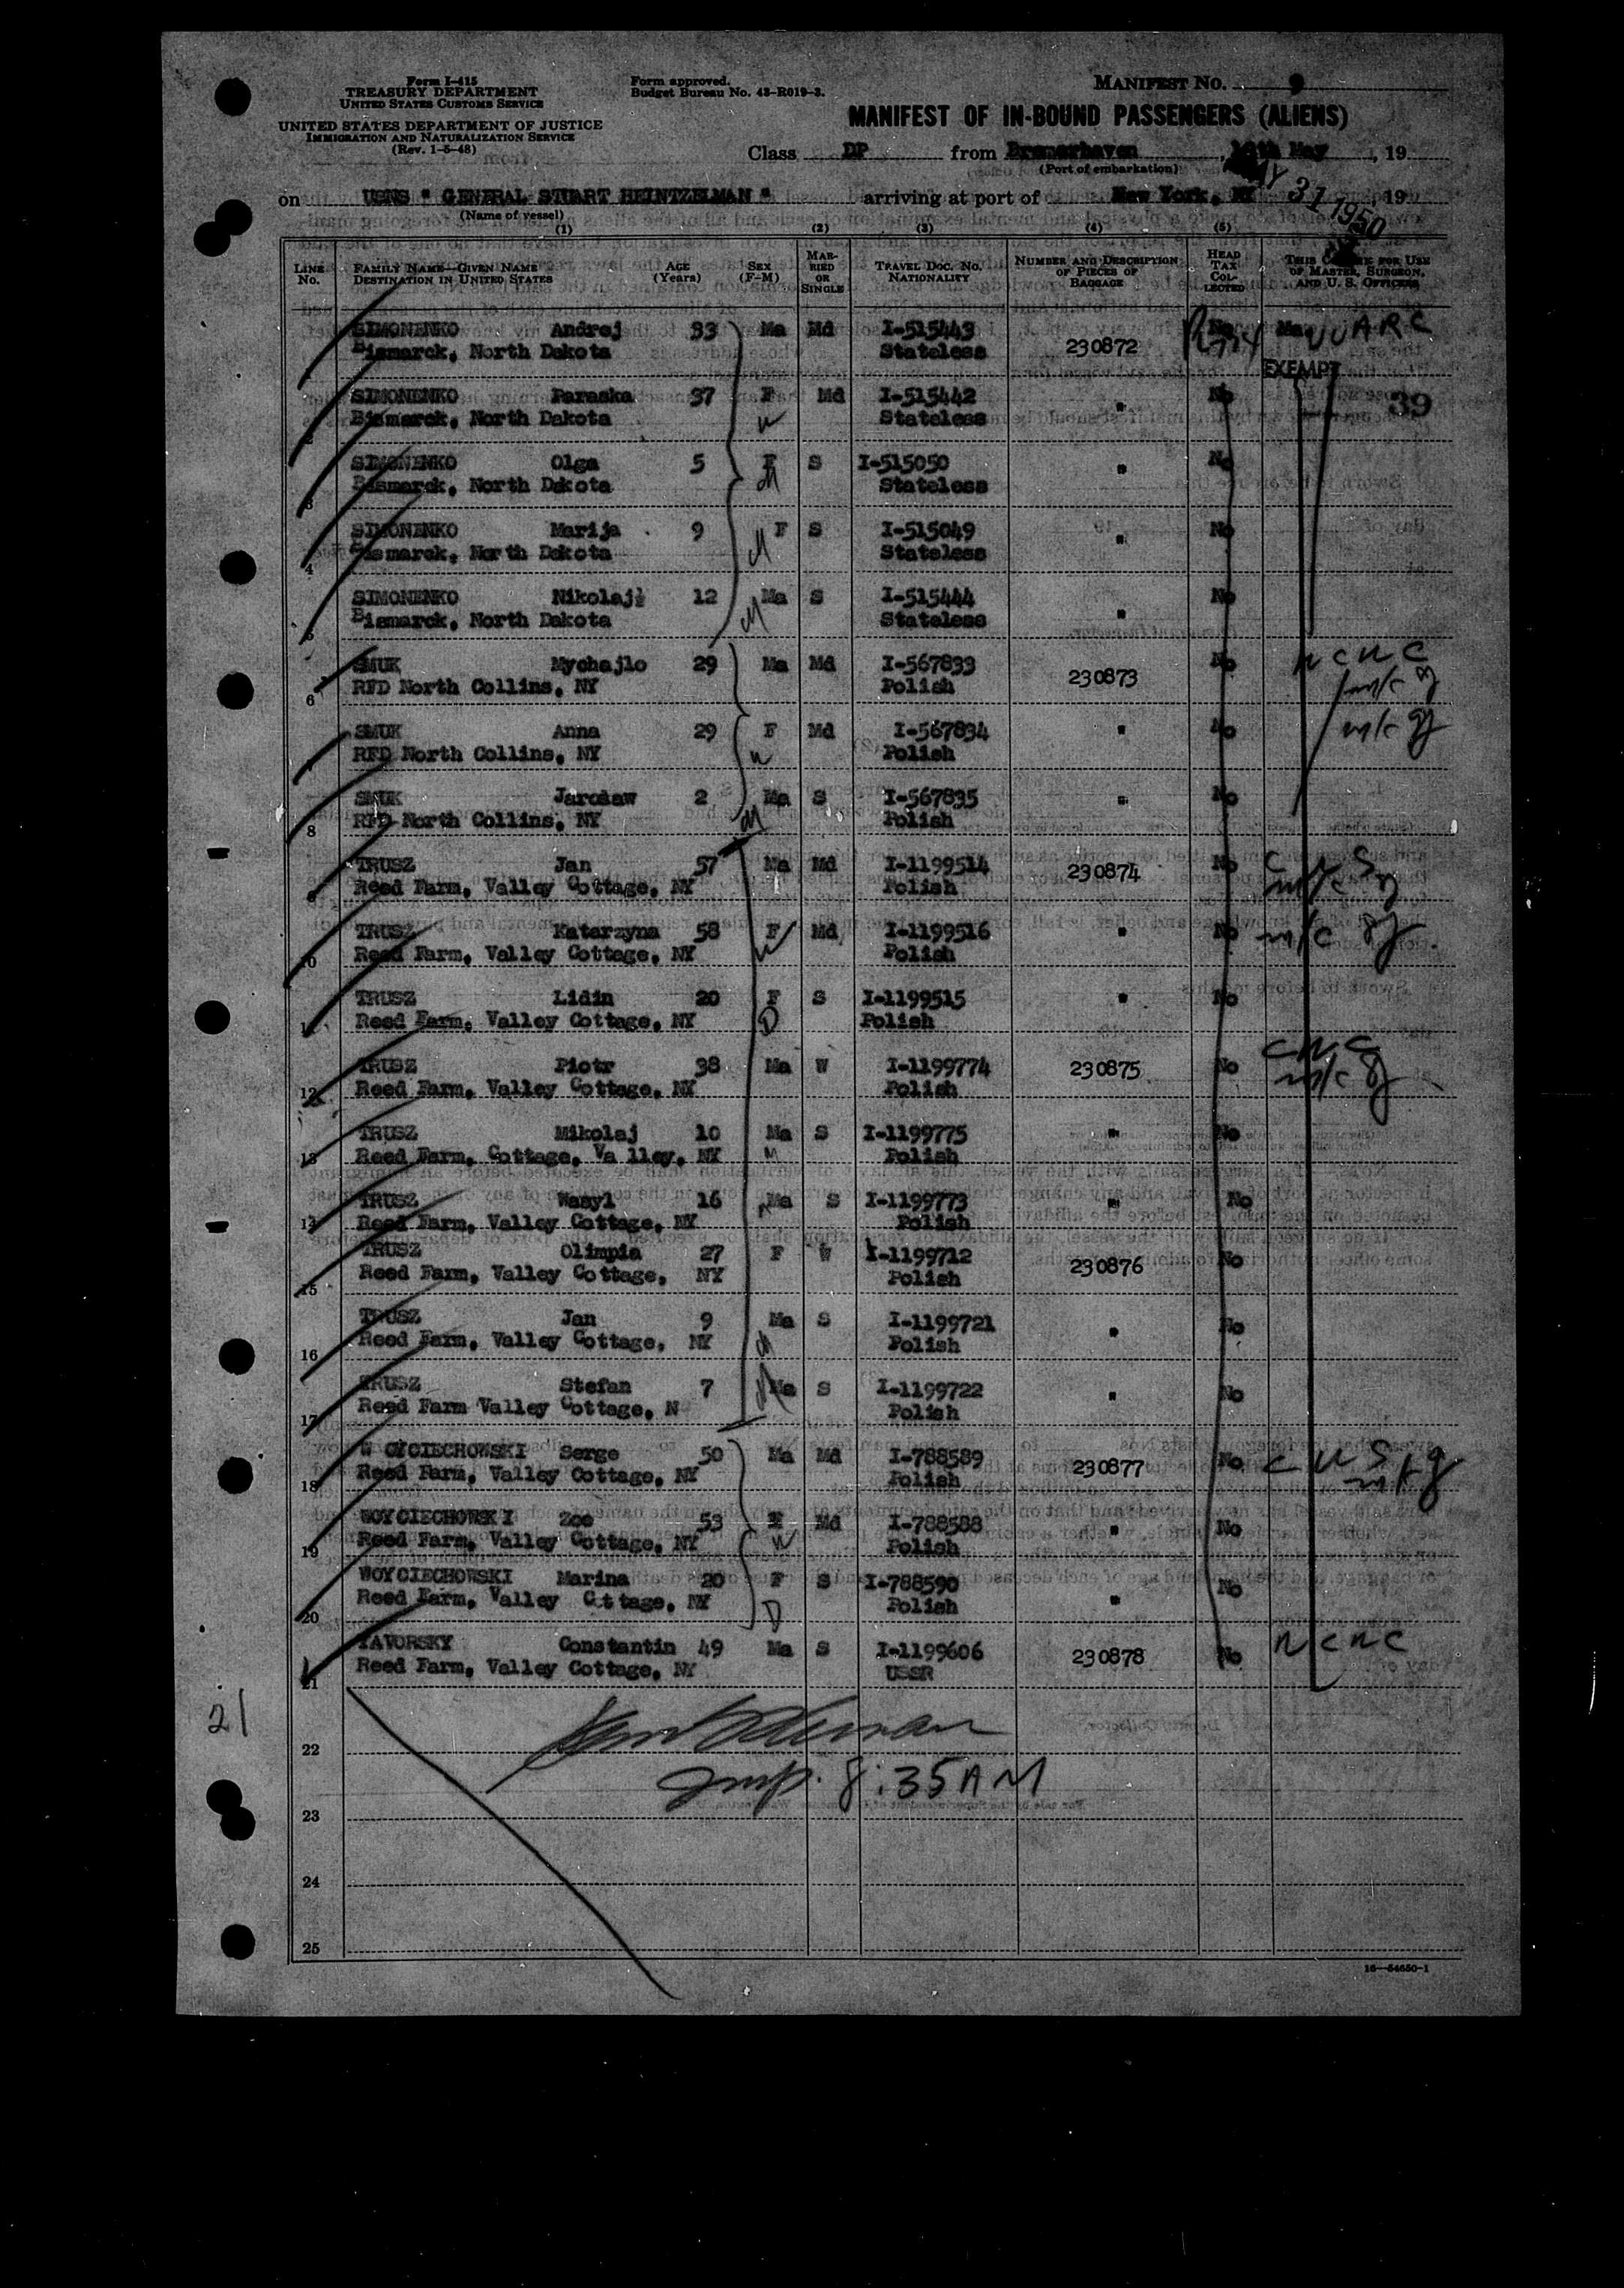 Form I-415
TREASURY DEPARTMENT
UNITED STATES CUSTOMS SERVICE
UNITED STATES DEPARTMENT OF JUSTICE
IMMIGRATION AND NATURALIZATION SERVICE
(Rev. 1-5-48)
Form approved.
Budget Bureau No. 43-R019-3.
MANIFEST NO. 9
MANIFEST OF IN-BOUND PASSENGERS (ALIENS)
Class DP from Bremerhaven, May, 19
(Port of embarkation)
on USNS " GENERAL STUART HEINTZELMAN " arriving at port of New York, NY 31 1950, 19
(Name of vessel)
(1) (2) (3) (4) (5)
LINE No. FAMILY NAME—GIVEN NAME DESTINATION IN UNITED STATES AGE (Years) SEX (F-M) MARRIED OR SINGLE TRAVEL DOC. NO. NATIONALITY NUMBER AND DESCRIPTION OF PIECES OF BAGGAGE HEAD TAX COLLECTED THIS COLUMN FOR USE OF MASTER, SURGEON, AND U. S. OFFICERS
SIMONENKO Andrej 33 Ma Md I-515443 230872 No
1 Bismarck, North Dakota Stateless EXEMPT
SIMONENKO Paraska 37 F Md I-515442 " No 39
2 Bismarck, North Dakota Stateless
SIMONENKO Olga 5 F S I-515050 " No
3 Bismarck, North Dakota Stateless
SIMONENKO Marija 9 F S I-515049 " No
4 Bismarck, North Dakota Stateless
SIMONENKO Nikolaj 12 Ma S I-515444 " No
5 Bismarck, North Dakota Stateless
SMUK Mychajlo 29 Ma Md I-567833 230873 No n c n c
6 RFD North Collins, NY Polish m/c
SMUK Anna 29 F Md I-567834 " No m/c
7 RFD North Collins, NY Polish
SMUK Jarosaw 2 Ma S I-567835 " No
8 RFD North Collins, NY Polish
TRUSZ Jan 57 Ma Md I-1199514 230874 No
9 Reed Farm, Valley Cottage, NY Polish m/c
TRUSZ Katarzyna 58 F Md I-1199516 " No m/c
10 Reed Farm, Valley Cottage, NY Polish
TRUSZ Lidin 20 F S I-1199515 " No
11 Reed Farm, Valley Cottage, NY Polish
TRUSZ Piotr 38 Ma W I-1199774 230875 No c n c
12 Reed Farm, Valley Cottage, NY Polish m/c
TRUSZ Mikolaj 10 Ma S I-1199775 " No
13 Reed Farm, Cottage, Va lley, NY Polish
TRUSZ Wasyl 16 Ma S I-1199773 " No
14 Reed Farm, Valley Cottage, NY Polish
TRUSZ Olimpia 27 F W I-1199712 230876 No
15 Reed Farm, Valley Cottage, NY Polish
TRUSZ Jan 9 Ma S I-1199721 " No
16 Reed Farm, Valley Cottage, NY Polish
TRUSZ Stefan 7 Ma S I-1199722 " No
17 Reed Farm Valley Cottage, N Polish
W OYCIECHOWSKI Serge 50 Ma Md I-788589 230877 No
18 Reed Farm, Valley Cottage, NY Polish
WOYCIECHOWSKI Zoe 53 F Md I-788588 " No
19 Reed Farm, Valley Cottage, NY Polish
WOYCIECHOWSKI Marina 20 F S I-788590 " No
20 Reed Farm, Valley Cottage, NY Polish
YAVORSKY Constantin 49 Ma S I-1199606 230878 No n c n c
21 Reed Farm, Valley Cottage, NY USSR
21
22
Insp. 8:35 AM
23
24
25
16—54650-1